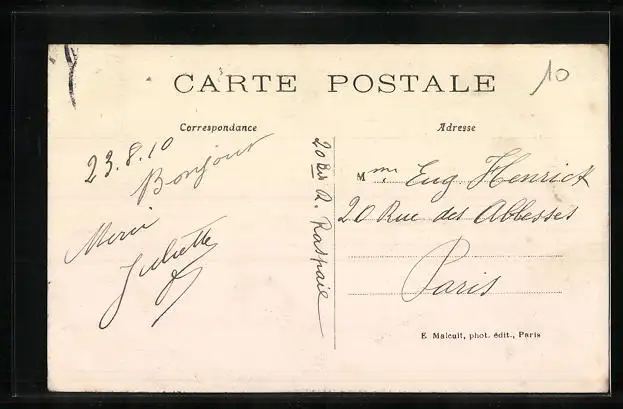 CARTE POSTALE
10
Correspondance
Adresse
23.8.10
Bonjour
Merci
Juliette
20 Bis R. Raspail
Mme Eug Henrick
20 Rue des Abbesses
Paris
E Malcuit, phot. édit., Paris